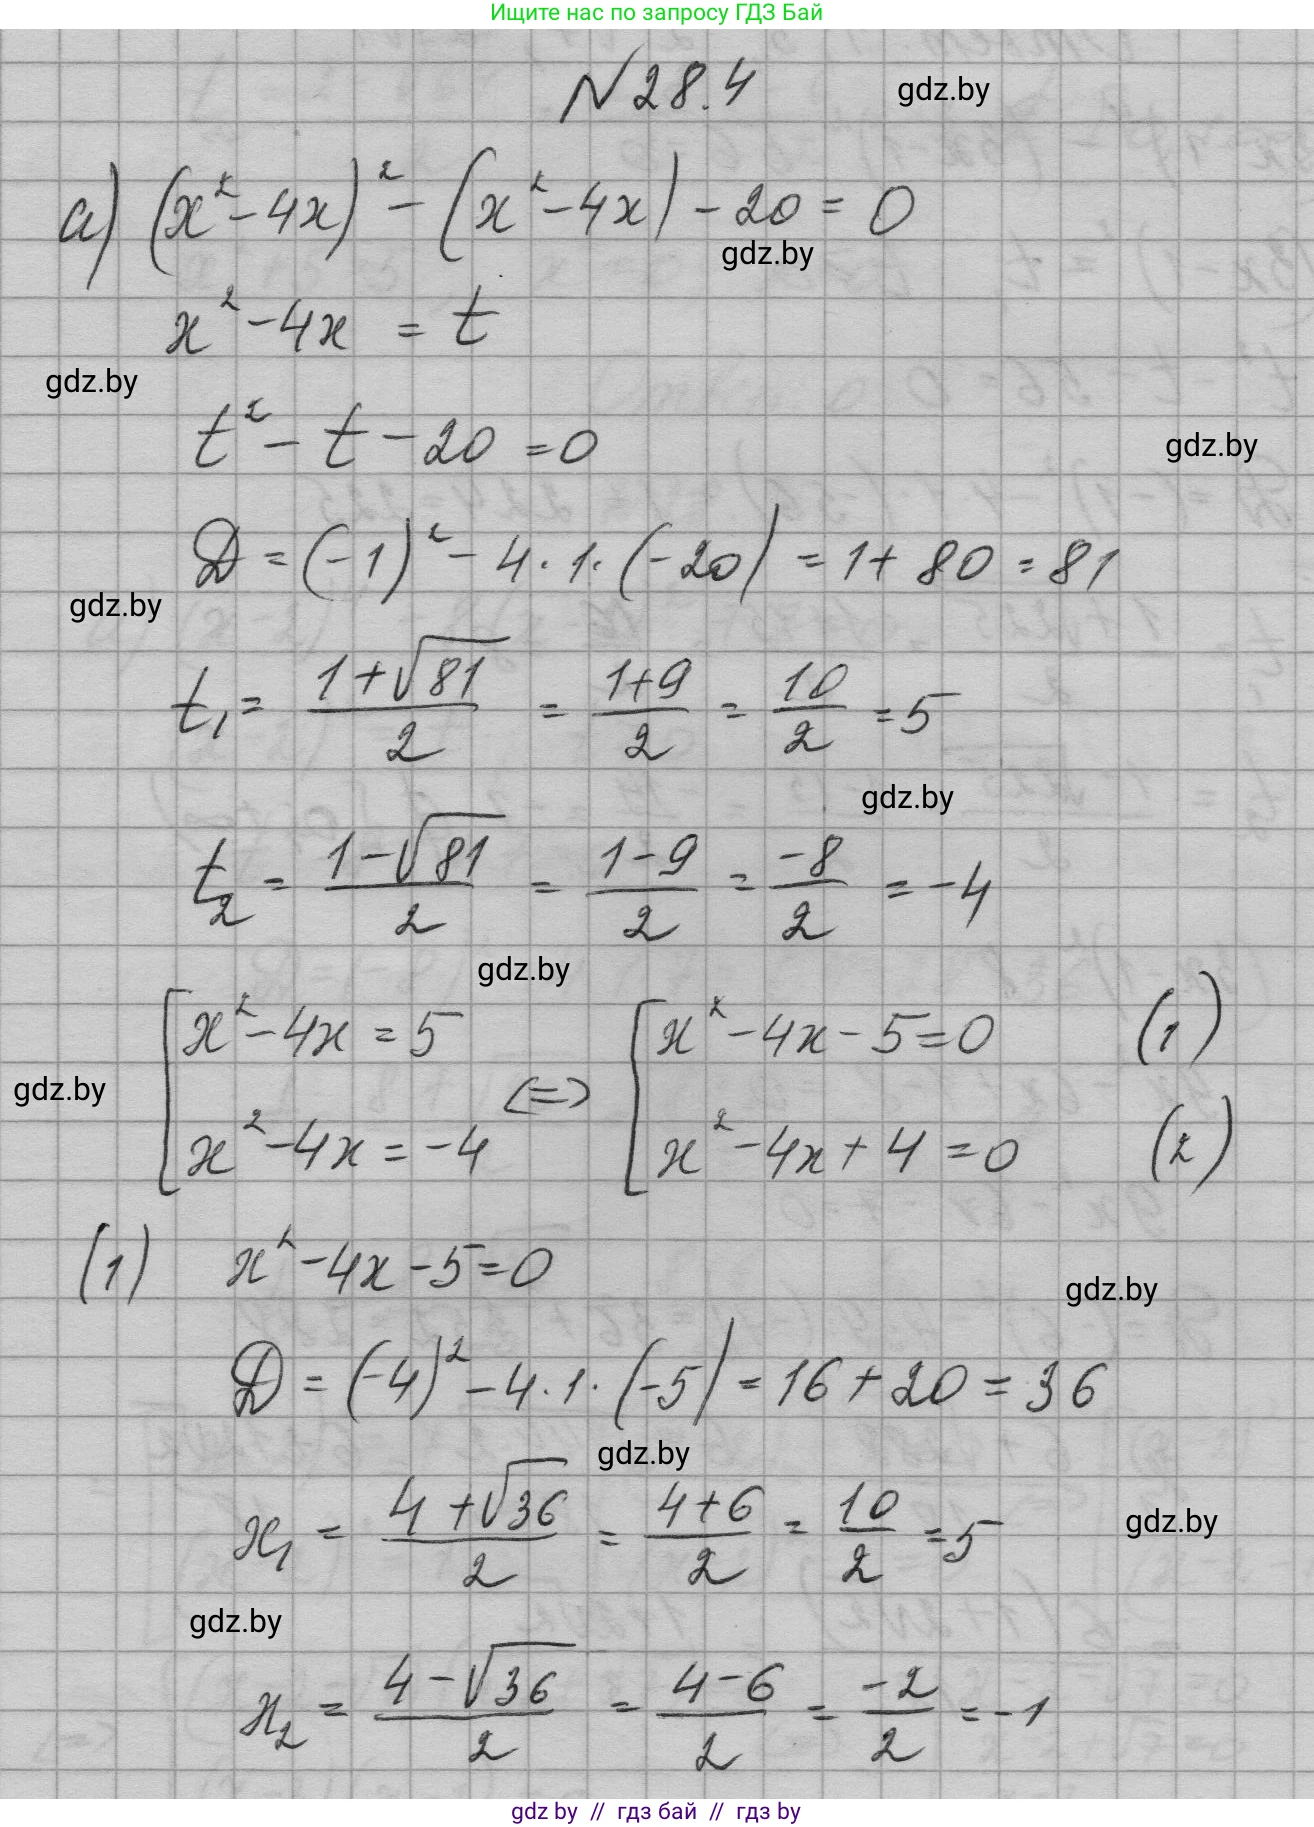 Ищите нас по запросу ГДЗ Бай
№28.4
gdz.by
а) (x² - 4x)² - (x² - 4x) - 20 = 0
gdz.by
x² - 4x = t
gdz.by
t² - t - 20 = 0
gdz.by
D = (-1)² - 4·1·(-20) = 1 + 80 = 81
gdz.by
t₁ = (1+√81)/2 = (1+9)/2 = 10/2 = 5
gdz.by
t₂ = (1-√81)/2 = (1-9)/2 = -8/2 = -4
gdz.by
[ x² - 4x = 5 <=> [ x² - 4x - 5 = 0 (1)
gdz.by
x² - 4x = -4 x² - 4x + 4 = 0 (2)
(1) x² - 4x - 5 = 0
gdz.by
D = (-4)² - 4·1·(-5) = 16 + 20 = 36
gdz.by
x₁ = (4+√36)/2 = (4+6)/2 = 10/2 = 5
gdz.by
gdz.by
x₂ = (4-√36)/2 = (4-6)/2 = -2/2 = -1
gdz by // гдз бай // гдз by